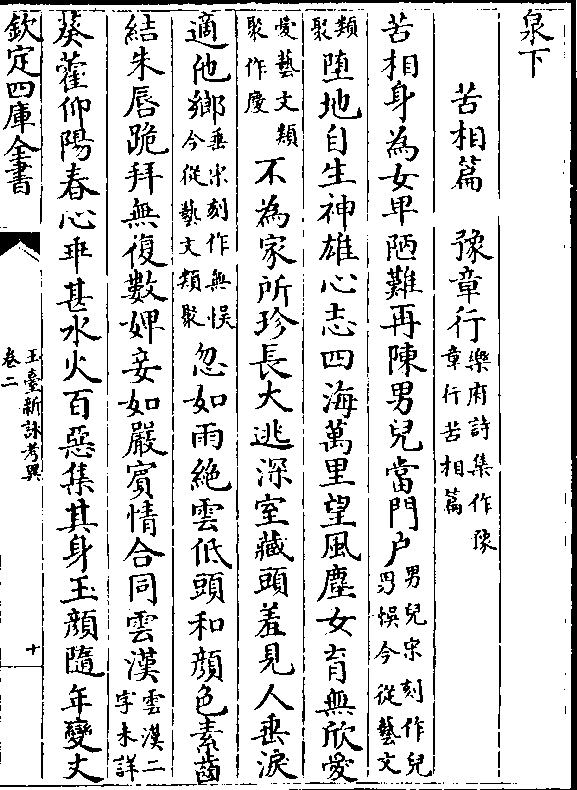 泉下
苦相篇　豫章行樂府詩集作豫章行苦相篇
苦相身為女卑陋難再陳男兒當門户男兒宋刻作兒男悞今從藝文
類聚墮地自生神雄心志四海萬里望風塵女育無欣愛
愛藝文類聚作慶不為家所珍長大逃深室藏頭羞見人垂淚
適他鄉垂宋刻作無悞今從藝文類聚忽如雨絶雲低頭和顔色素齒
結朱唇跪拜無復數婢妾如嚴賓情合同雲漢雲漢二字未詳
葵藿仰陽春心乖甚水火百惡集其身玉顔隨年變丈
欽定四庫全書
玉臺新詠考異
卷二
十